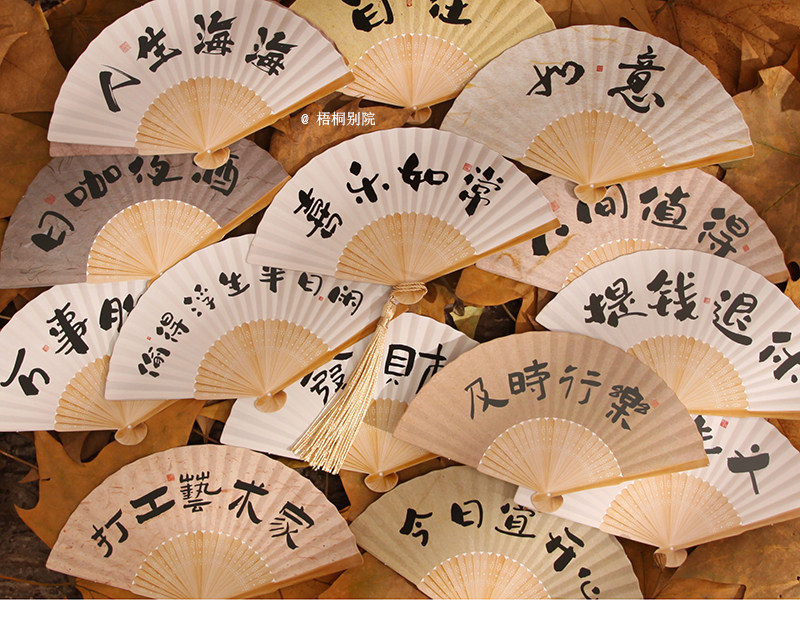 人生海海
自
如意
@ 梧桐别院
日咖夜酒
喜乐如常
人间值得
提钱退休
万事
偷得浮生半日闲
發財
及時行樂
打工藝术家
今日宜开心